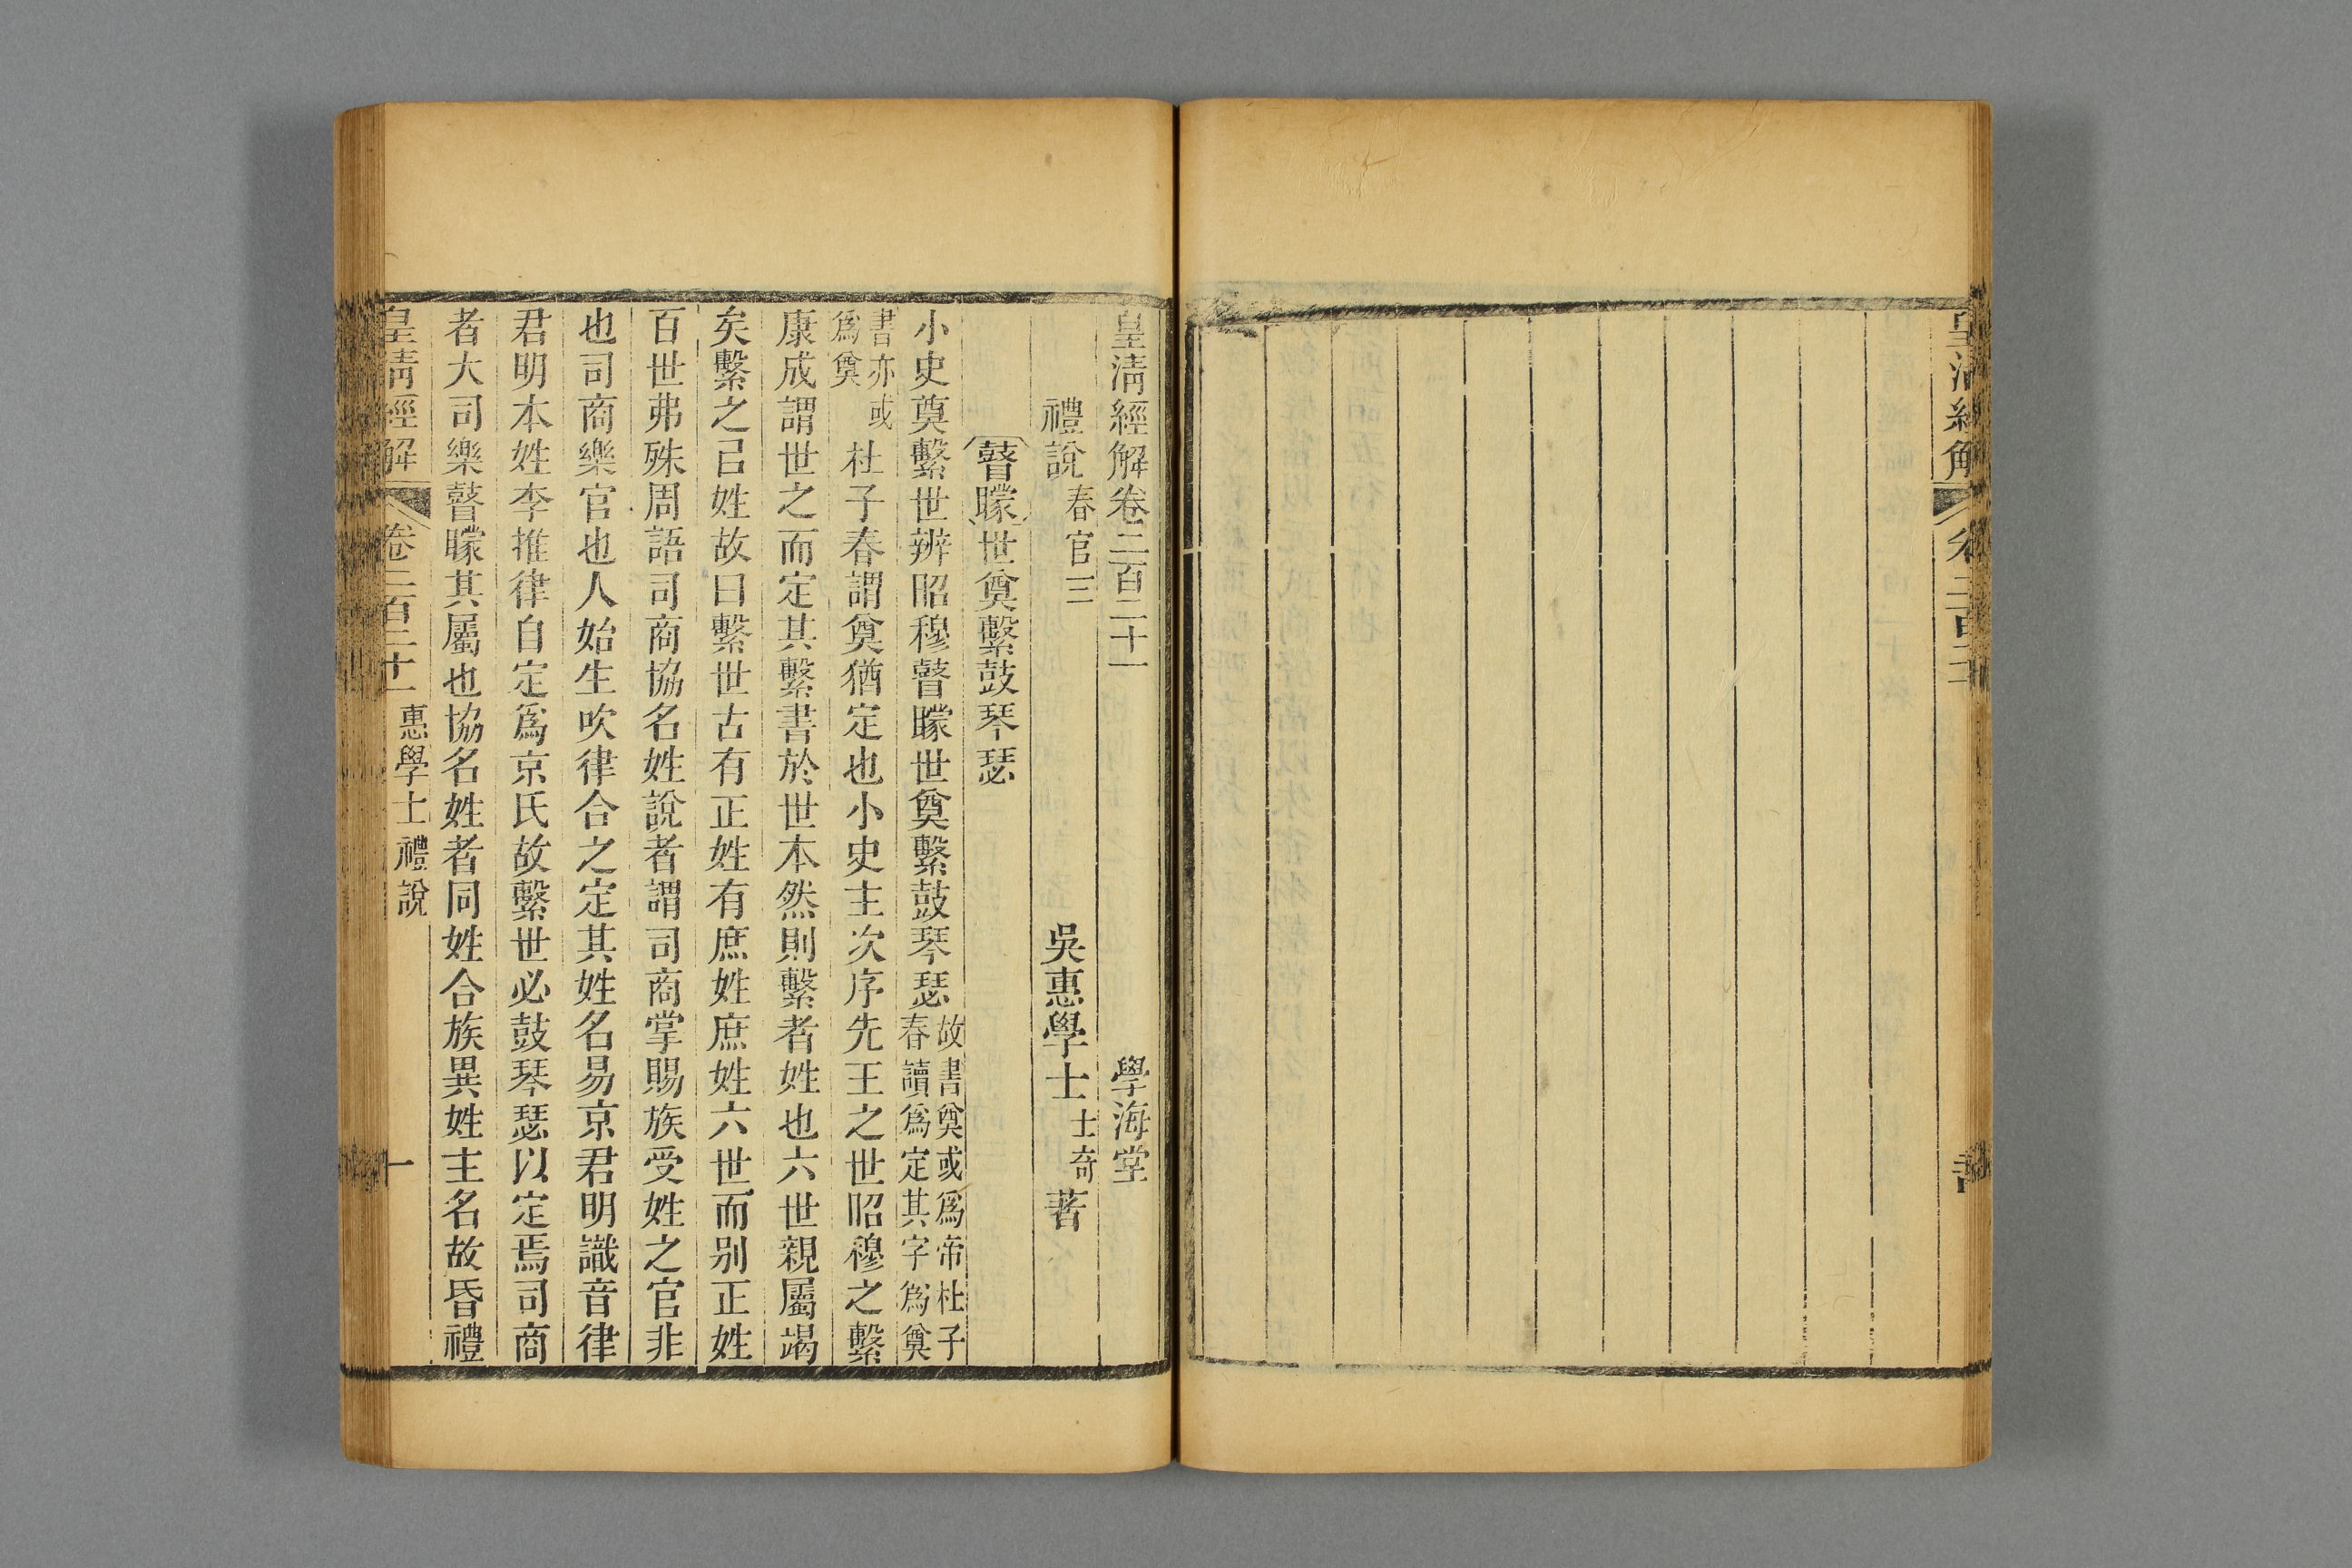 皇清經解卷二百二十一 學海堂
禮說 春官三 吳惠學士 士奇 著
瞽矇 世奠繫鼓琴瑟
小史奠繫世辨昭穆瞽矇世奠繫鼓琴瑟 故書奠或爲帝杜子
春讀爲定其字爲奠
書亦或
爲奠
杜子春謂奠猶定也小史主次序先王之世昭穆之繫
康成謂世之而定其繫書於世本然則繫者姓也六世親屬竭
矣繫之己姓故曰繫世古有正姓有庶姓庶姓六世而別正姓
百世弗殊周語司商協名姓說者謂司商掌賜族受姓之官非
也司商樂官也人始生吹律合之定其姓名易京君明識音律
君明本姓李推律自定爲京氏故繫世必鼓琴瑟以定焉司商
者大司樂瞽矇其屬也協名姓者同姓合族異姓主名故昏禮
皇清經解 卷二百二十一 惠學士禮說 一
皇清經解 卷二百二